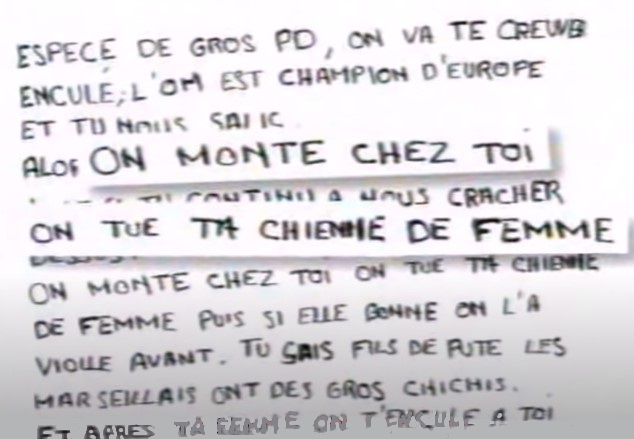 ESPECE DE GROS PD, ON VA TE CREUVE
ENCULÉ; L'OM EST CHAMPION D'EUROPE
ET TU NOUS SALIC
ALOR ON MONTE CHEZ TOI
TU CONTINU A NOUS CRACHER
ON TUE TA CHIENNE DE FEMME
DESSUS
ON MONTE CHEZ TOI ON TUE TA CHIENNE
DE FEMME PUIS SI ELLE BONNE ON L'A
VIOLLE AVANT. TU SAIS FILS DE PUTE LES
MARSEILLAIS ONT DES GROS CHICHIS.
ET APRES TA FEMME ON T'ENCULE A TOI